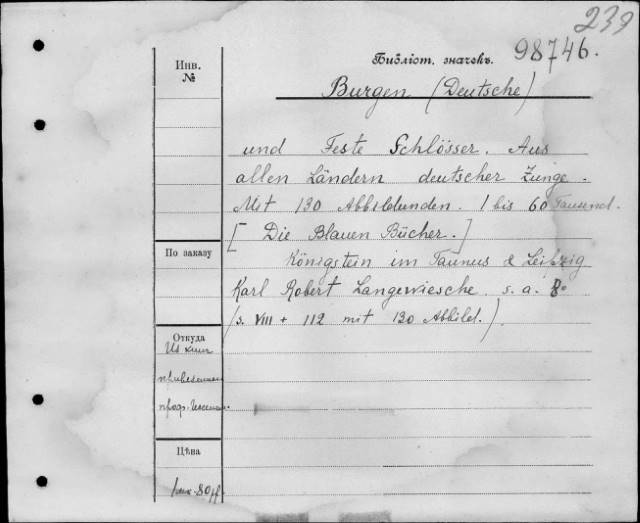 239
Инв.
№
Библіот. значекъ. 98746.
Burgen (Deutsche)
und Feste Schlösser. Aus
allen Ländern deutscher Zunge.
Mit 130 Abbildunden. 1 bis 60 Tausend.
[Die Blauen Bücher.]
По заказу
Königstein im Taunus & Leipzig
Karl Robert Langewiesche s. a. 8°
(s. VIII + 112 mit 130 Abbild.)
Откуда
Из книг
привезенных
проф.
Цѣна